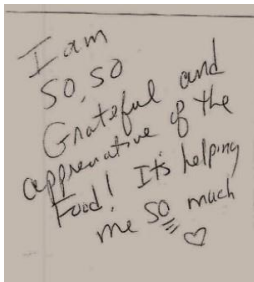 I am
so, so
Grateful and
apprenative of the
Food! It's helping
me so much ♡